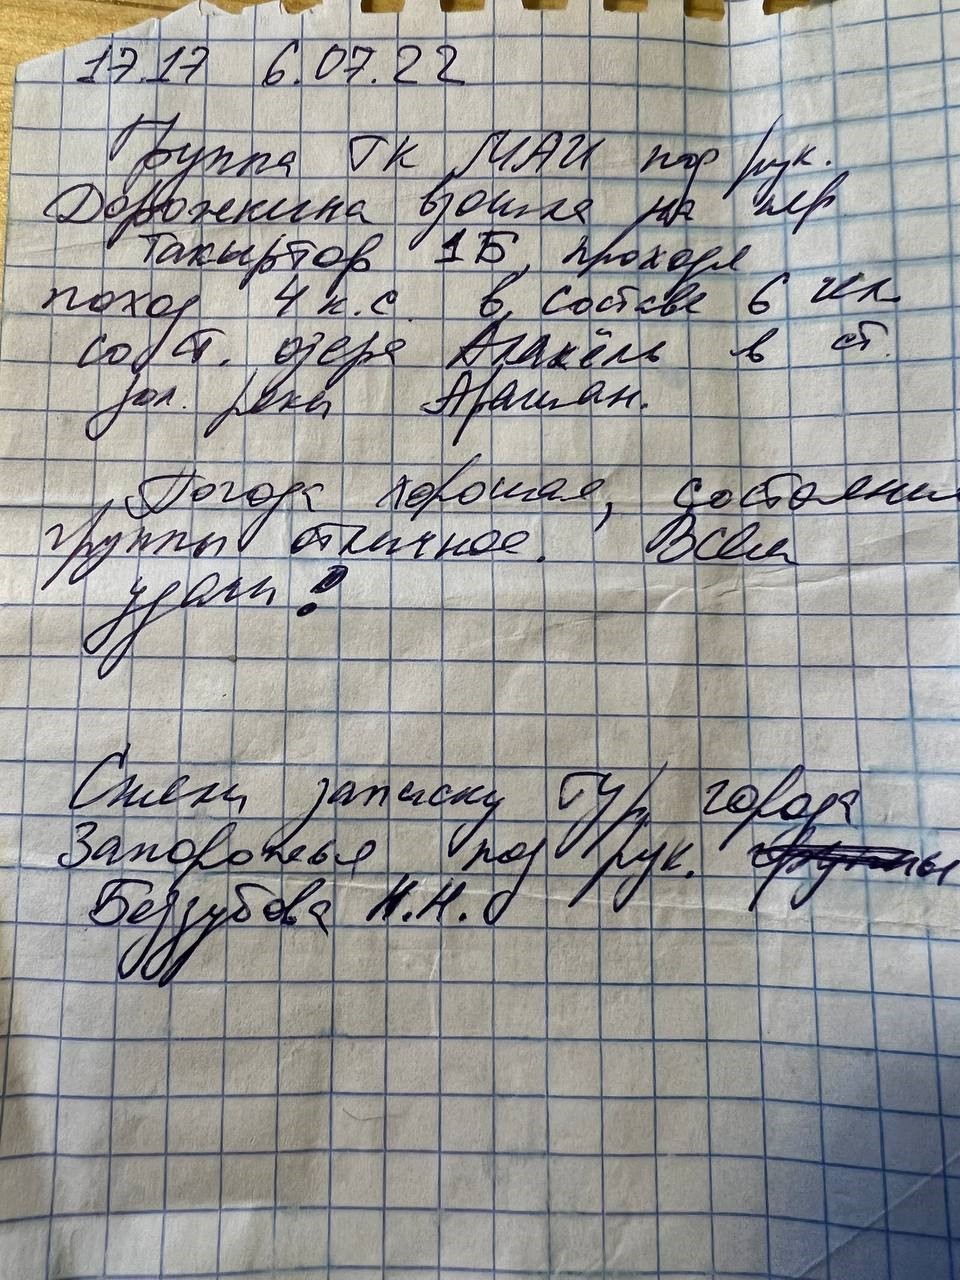 17.17 6.07.22
Группа ТК МАИ под рук.
Дорожкина взошла на пер.
Такыртор 1Б, проходя
поход 4 к.с. в составе 6 чел
со ст. озера Алакёль в ст.
дол. реки Арашан.
Погода хорошая, состояние
группы отличное. Всем
удачи!
Сняли записку Тур. города
Запорожья под рук. группы
Беззубова Н.Н.